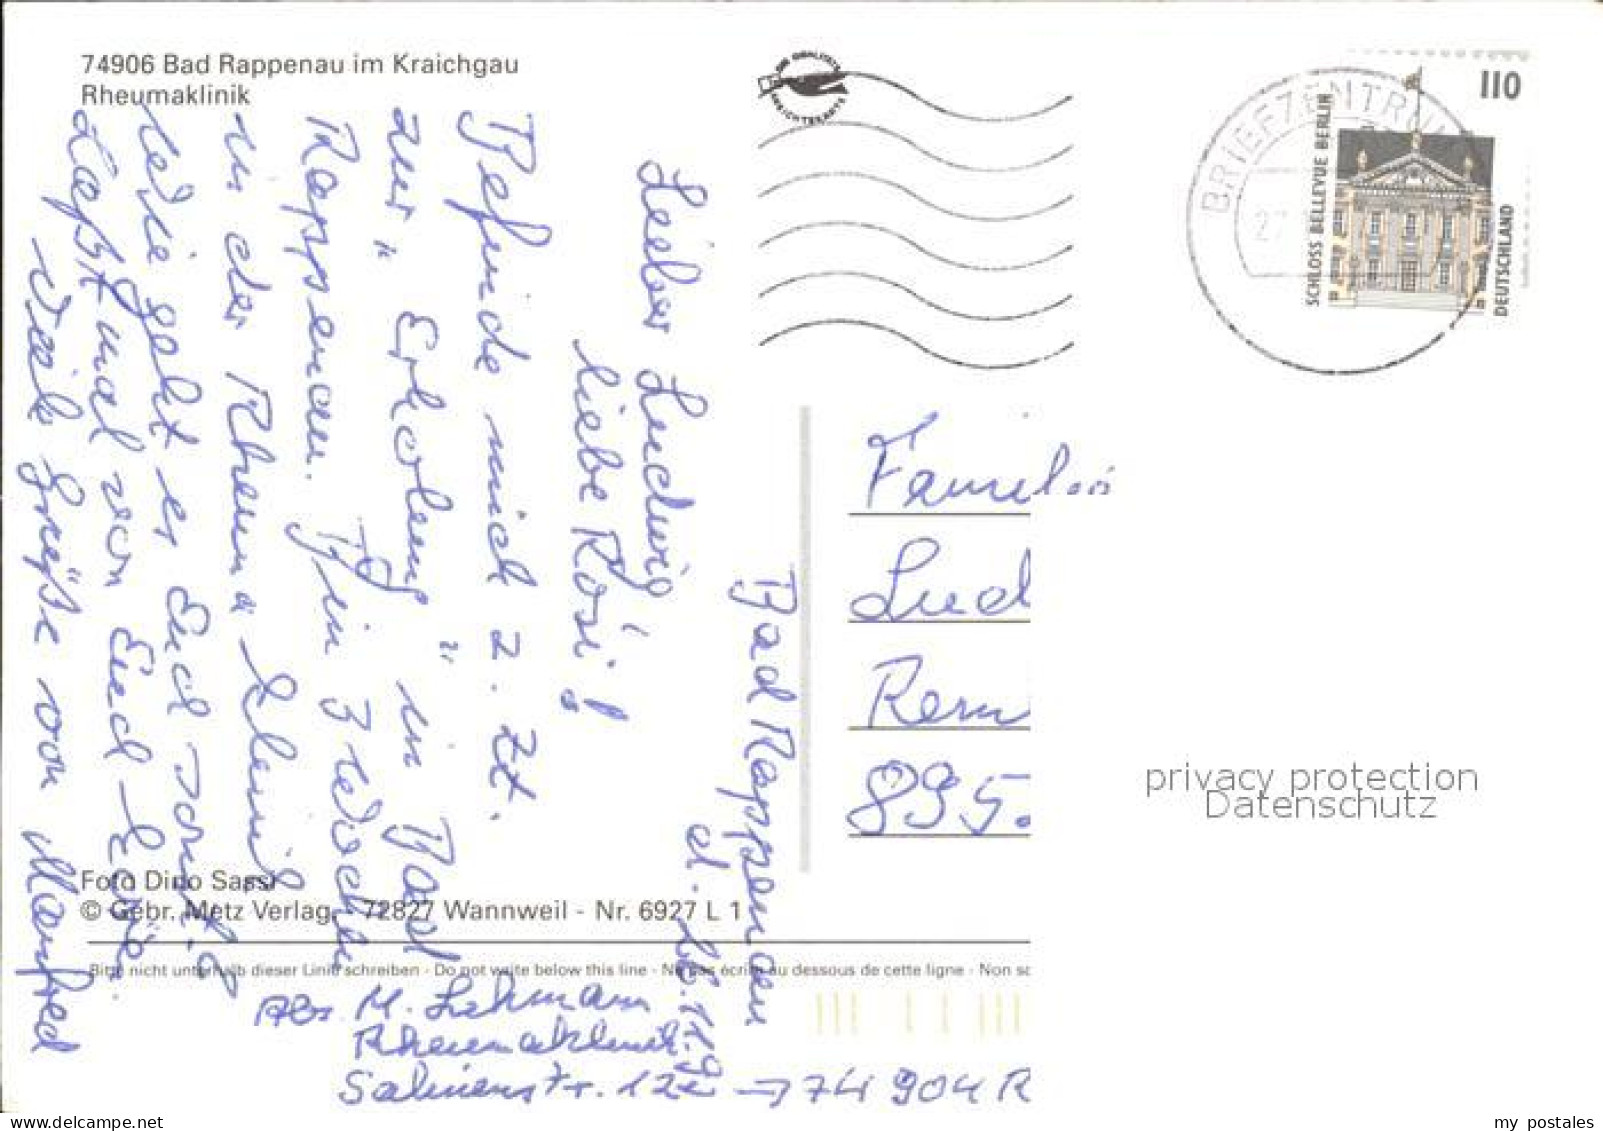 74906 Bad Rappenau im Kraichgau
Rheumaklinik
110
SCHLOSS BELLEVUE BERLIN
DEUTSCHLAND
BRIEFZENTRUM
27
Bad Rappenau
d. 26.11.9
Lieber Ludwig
liebe Rosi!
Befinde mich z. Zt.
zur "Erholung" in Bad
Rappenau. Bin 3 Wochen
in der Rheumaklinik
Wie geht es Euch sonst?
Laßt mal von Euch hören.
Viele Grüße von Manfred
Familie
Lud
Rem
895.
privacy protection
Datenschutz
Foto Dino Sassi
© Gebr. Metz Verlag, 72827 Wannweil - Nr. 6927 L 1
Bitte nicht unterhalb dieser Linie schreiben - Do not write below this line - Ne pas écrire au dessous de cette ligne - Non sc
Abs. M. Lehmann
Rheumaklinik
Salinenstr. 12 → 74904 R
my postales